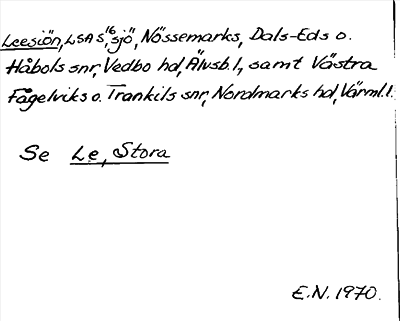 Leesiön, LSA s, "sjö"¹⁶, Nössemarks, Dals-Eds o.
Håbols snr, Vedbo hd, Älvsb. l., samt Västra
Fågelviks o. Trankils snr, Nordmarks hd, Värml. l.
Se Le, Stora
E.N. 1970.